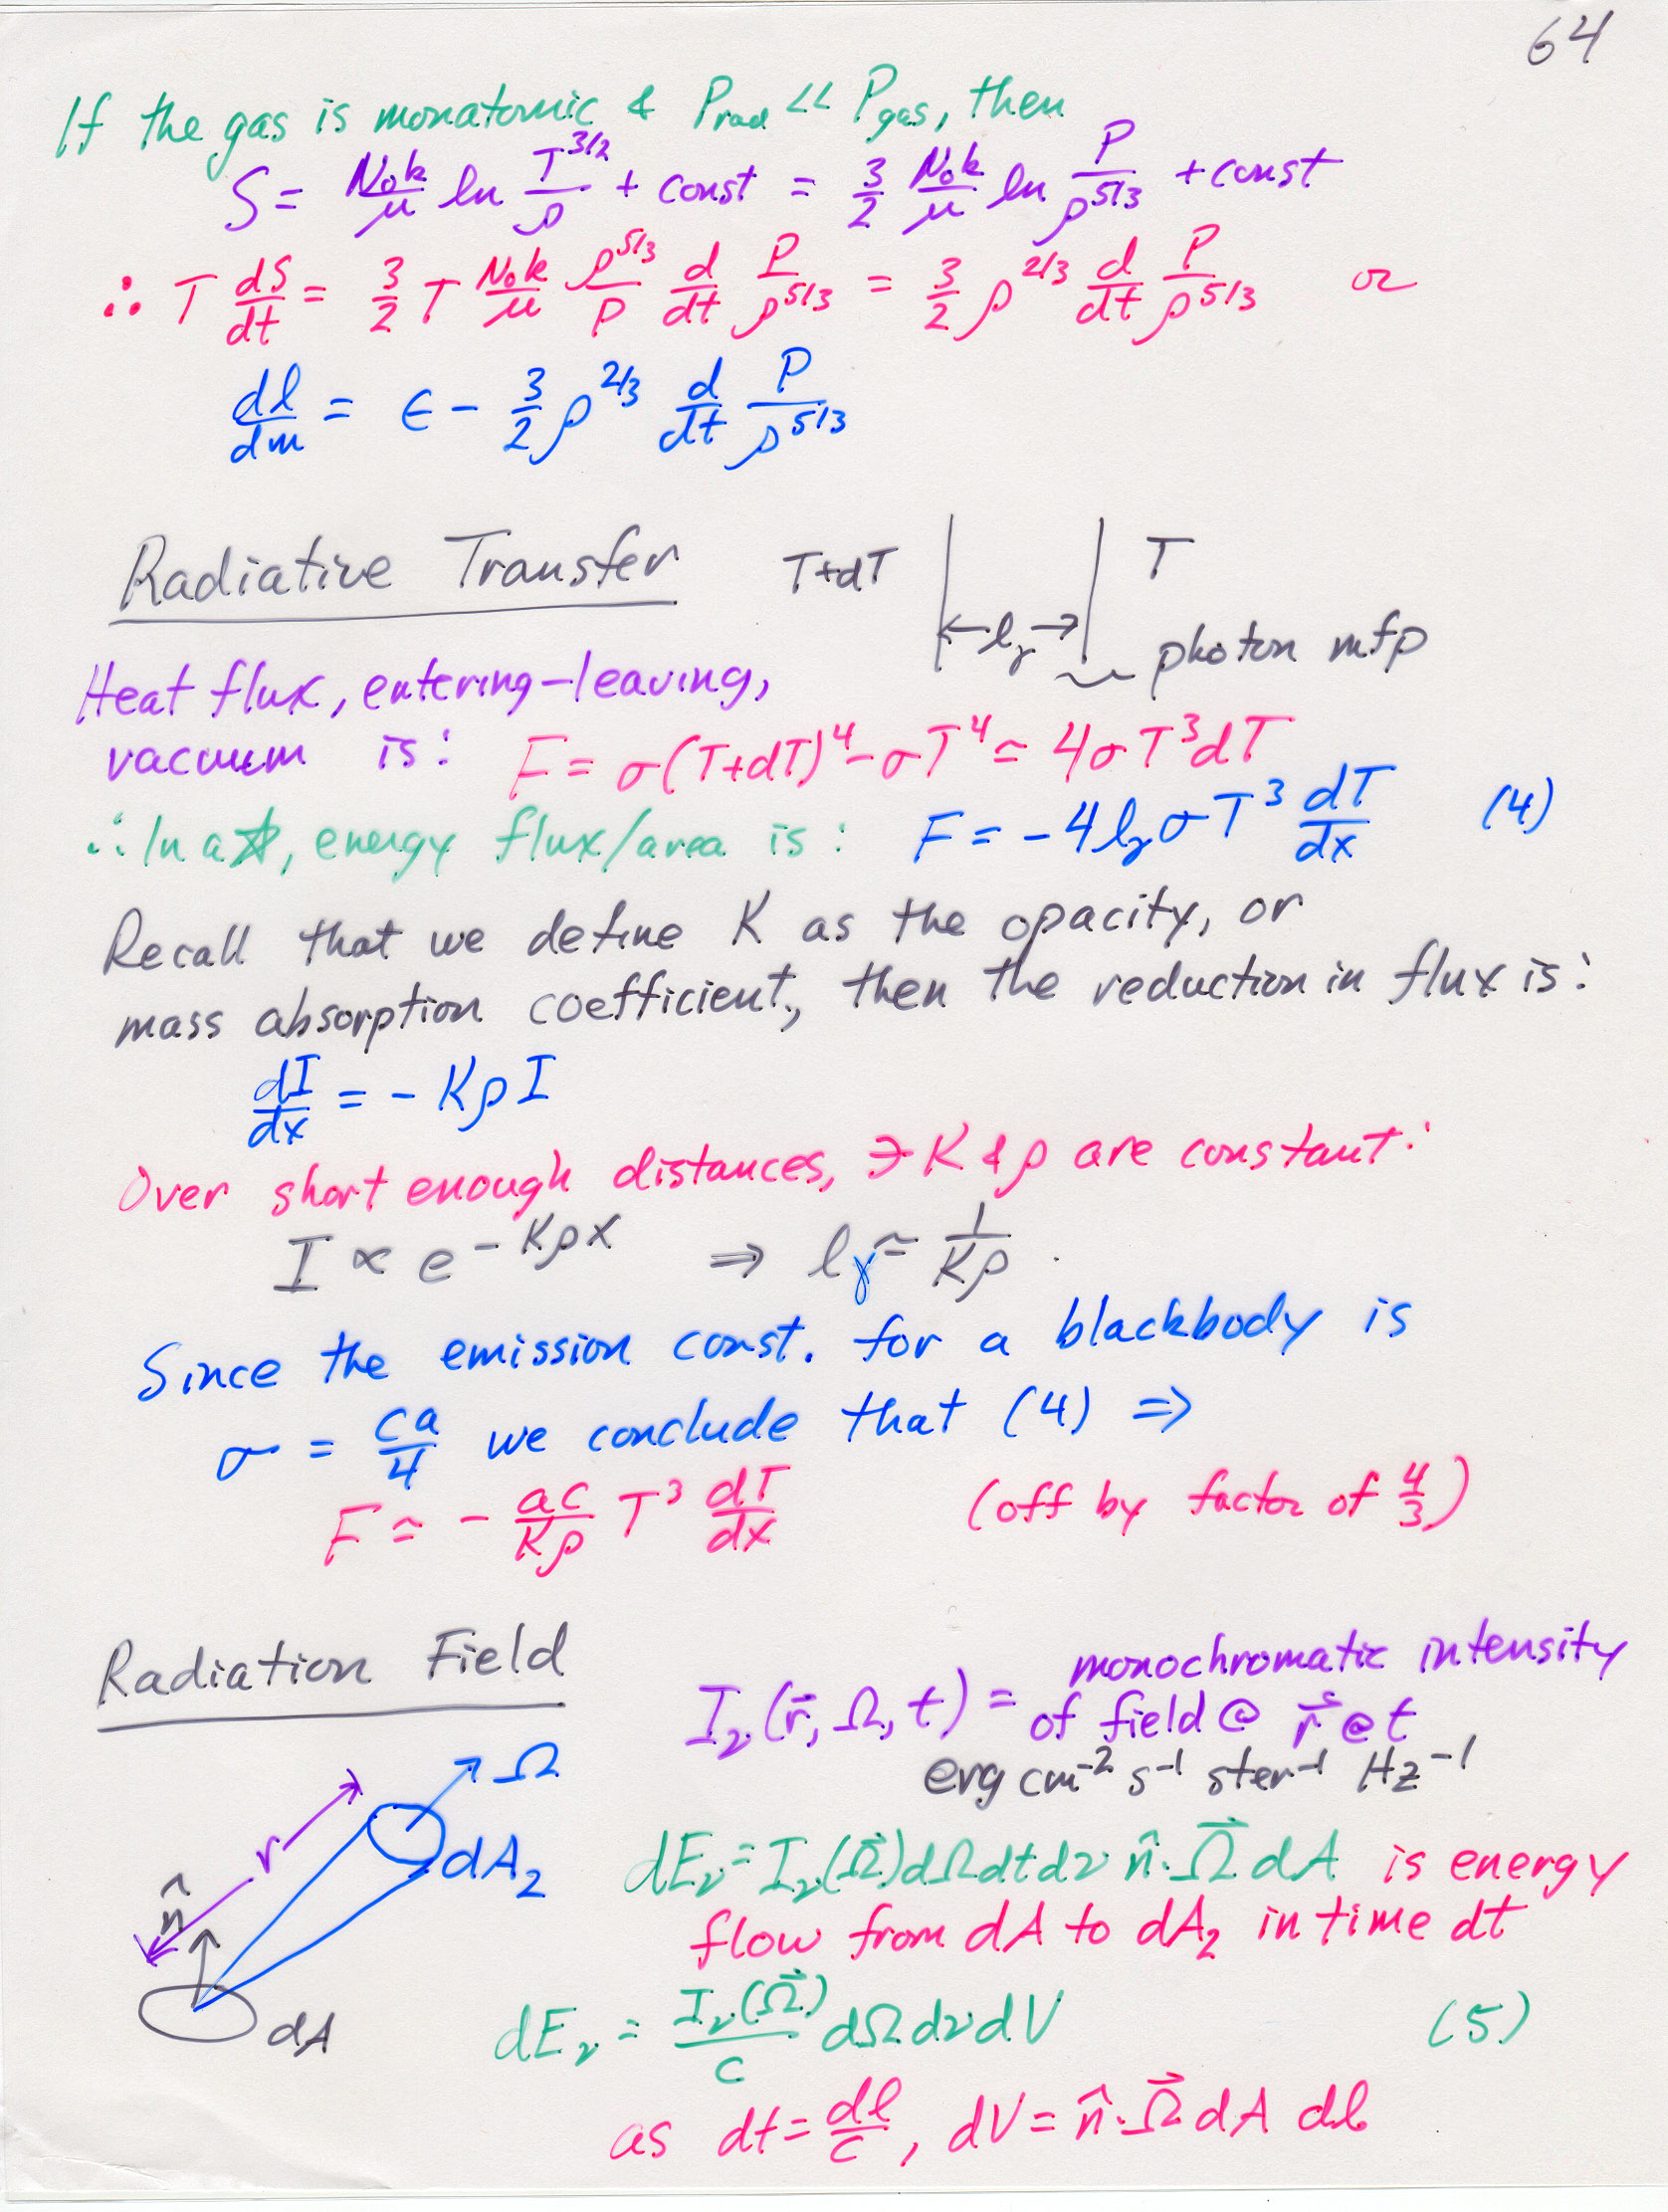 64
If the gas is monatomic & P_rad << P_gas, then
S = N₀k/μ ln T^3/2/ρ + const = 3/2 N₀k/μ ln P/ρ^5/3 + const
∴ T dS/dt = 3/2 T N₀k/μ ρ^5/3/P d/dt P/ρ^5/3 = 3/2 ρ^2/3 d/dt P/ρ^5/3 or
dl/dm = ϵ - 3/2 ρ^2/3 d/dt P/ρ^5/3
Radiative Transfer
T+dT
T
l_γ
photon mfp
Heat flux, entering-leaving,
vacuum is: F = σ(T+dT)^4 - σT^4 ≃ 4σT^3dT
∴ In a ☆, energy flux/area is: F = -4l_γσT^3 dT/dx (4)
Recall that we define K as the opacity, or
mass absorption coefficient, then the reduction in flux is:
dI/dx = - KρI
Over short enough distances, ∋ K & ρ are constant:
I ∝ e^-Kρx ⇒ l_γ ≃ 1/Kρ .
Since the emission const. for a blackbody is
σ = ca/4 we conclude that (4) ⇒
F ≃ - ac/Kρ T^3 dT/dx (off by factor of 4/3)
Radiation Field
monochromatic intensity
I_ν(r⃗, Ω, t) = of field @ r⃗ @ t
erg cm^-2 s^-1 ster^-1 Hz^-1
Ω
r
dA₂
n̂
dA
dE_ν = I_ν(Ω⃗)dΩdtdν n̂·Ω⃗ dA is energy
flow from dA to dA₂ in time dt
dE_ν = I_ν(Ω⃗)/c dΩdνdV (5)
as dt = dl/c, dV = n̂·Ω⃗ dA dl